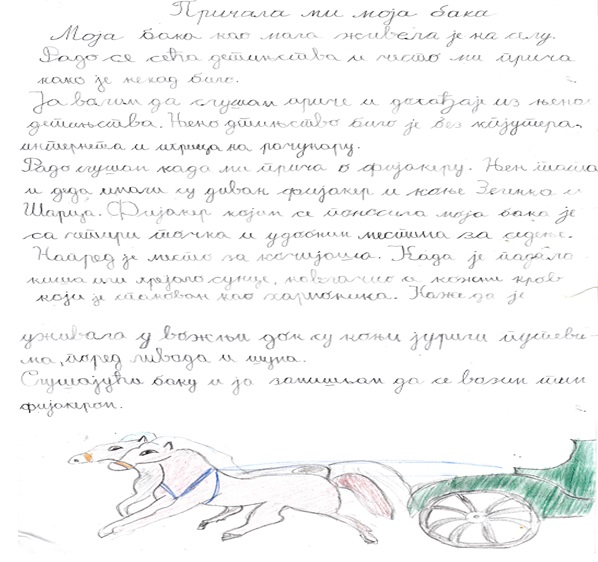 Причала ми моја бака
Моја бака као мала живела је на селу.
Радо се сећа детињства и често ми прича
како је некад било.
Ја волим да слушам приче и догађаје из њеног
детињства. Њено дтињство било је без кпјутера,
интернета и игрица на рачунару.
Радо слушам када ми прича о фијакеру. Њен тата
и деда имали су диван фијакер и коње Зеленка и
Шарца. Фијакер којим се поносила моја бака је
са четири точка и удобним местима за седење.
Напред је место за кочијаша. Када је падала
киша или грејало сунце, навлачио се кожни кров
који је склопован као хармоника. Каже да је
уживала у вожњи док су коњи јурили путеви-
ма, поред ливада и шума.
Слушајући баку и ја замишљам да се возим тим
фијакером.